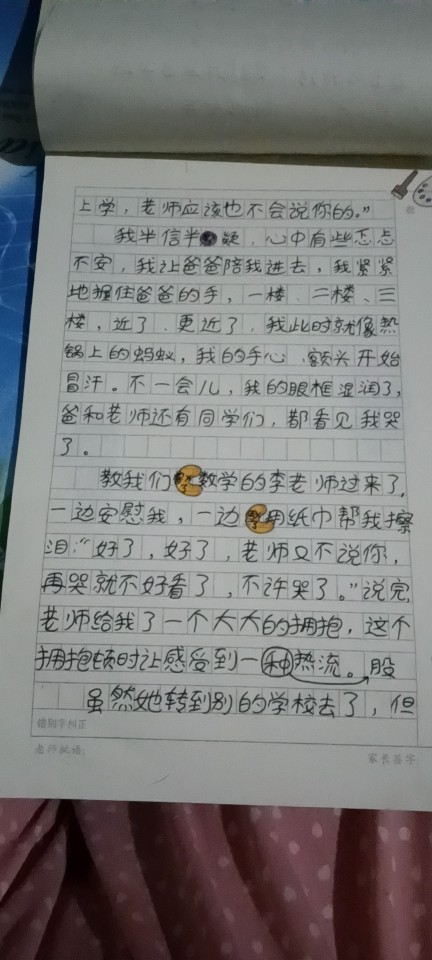 上学，老师应该也不会说你的。”
我半信半疑，心中有些忐忑
不安，我让爸爸陪我进去，我紧紧
地握住爸爸的手，一楼、二楼、三
楼，近了，更近了，我此时就像热
锅上的蚂蚁，我的手心、额头开始
冒汗。不一会儿，我的眼框湿润了，
爸和老师还有同学们，都看见我哭
了。
教我们数学的李老师过来了，
一边安慰我，一边用纸巾帮我擦
泪：“好了，好了，老师又不说你，
再哭就不好看了，不许哭了。”说完，
老师给我了一个大大的拥抱，这个
拥抱顿时让感受到一种热流。股
虽然她转到别的学校去了，但
错别字纠正
老师批语：
家长签字